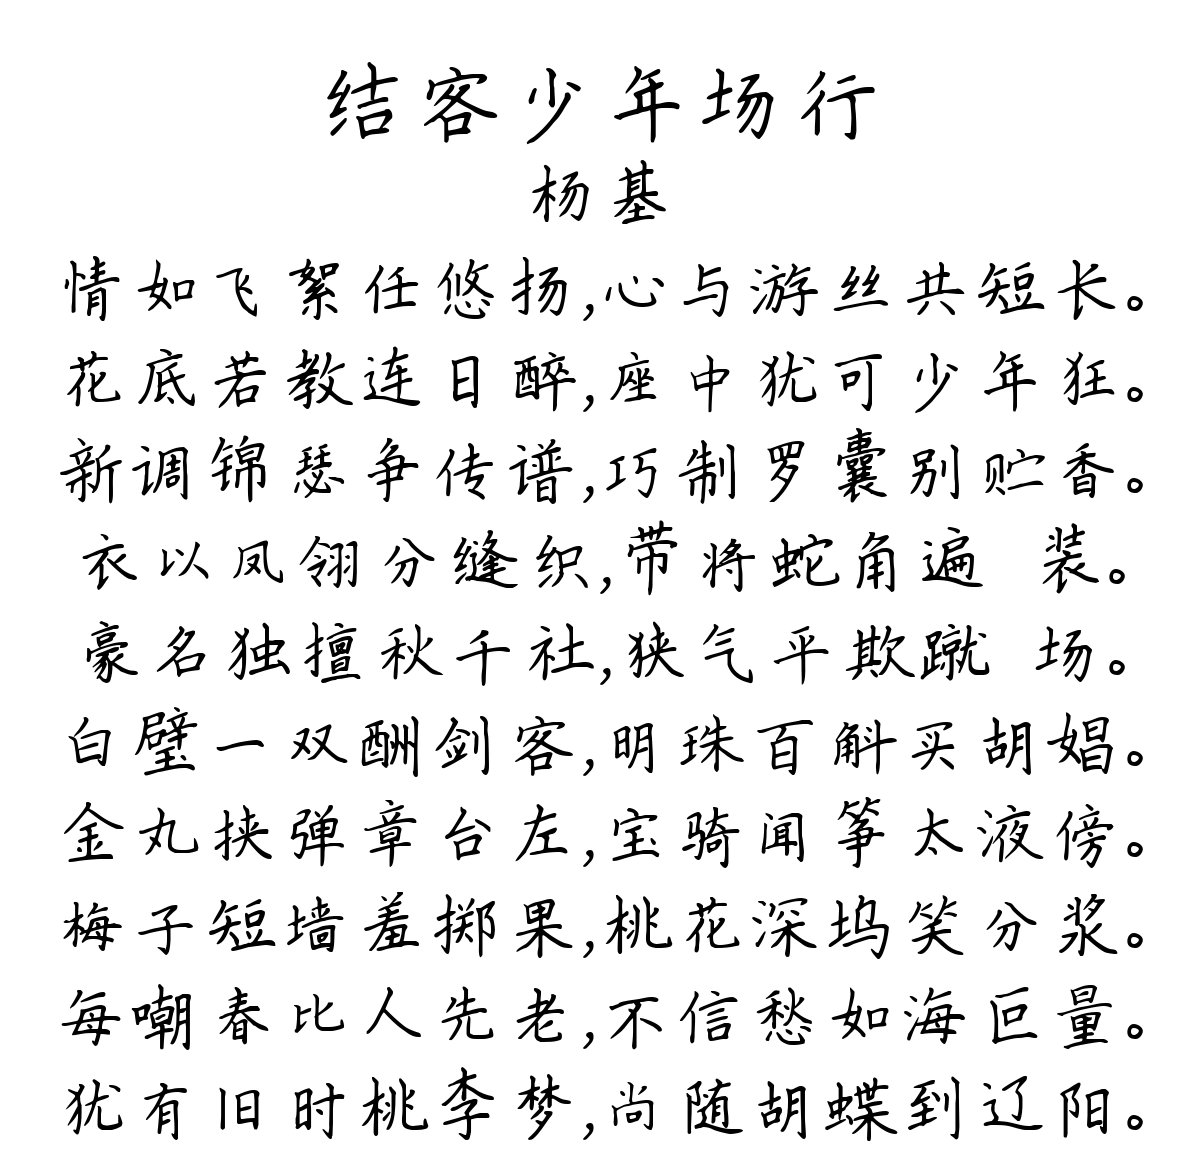 结客少年场行
杨基
情如飞絮任悠扬,心与游丝共短长。
花底若教连日醉,座中犹可少年狂。
新调锦瑟争传谱,巧制罗囊别贮香。
衣以凤翎分缝织,带将蛇角遍 装。
豪名独擅秋千社,狭气平欺蹴 场。
白璧一双酬剑客,明珠百斛买胡娼。
金丸挟弹章台左,宝骑闻筝太液傍。
梅子短墙羞掷果,桃花深坞笑分浆。
每嘲春比人先老,不信愁如海叵量。
犹有旧时桃李梦,尚随胡蝶到辽阳。